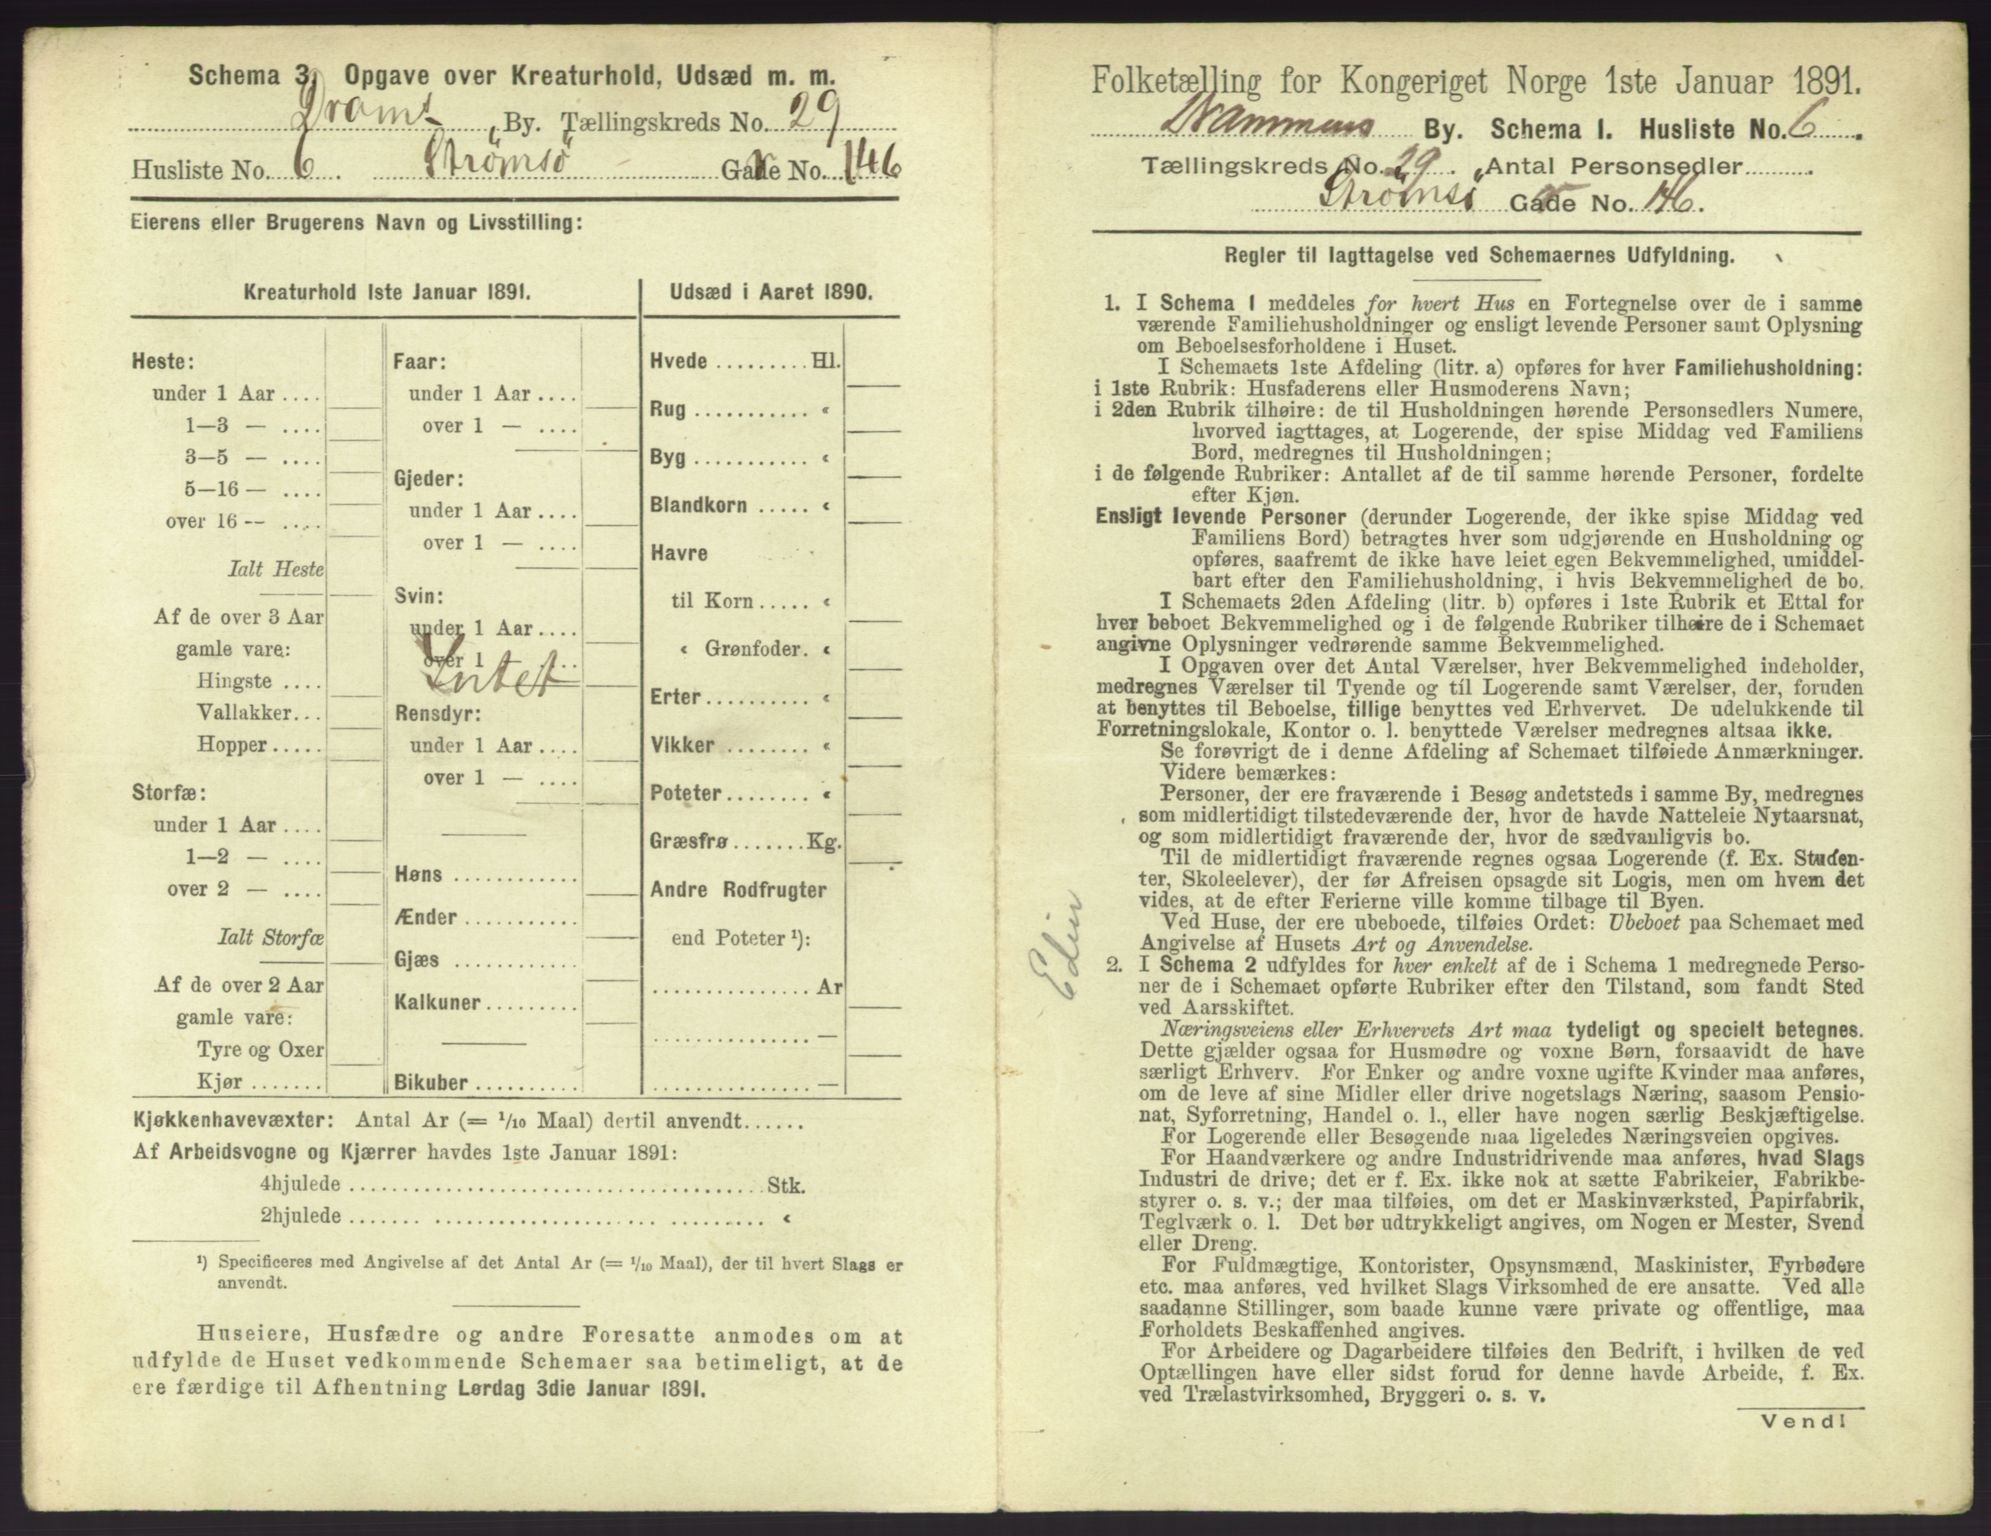 Schema 3. Opgave over Kreaturhold, Udsæd m. m.
Drams By. Tællingskreds No. 29
Husliste No. 6. Strømsö Gade No. 146
Eierens eller Brugerens Navn og Livsstilling:
Kreaturhold 1ste Januar 1891.
Heste:
under 1 Aar ....
1—3 — ....
3—5 — ....
5—16 — ....
over 16 -- ....
Ialt Heste
Af de over 3 Aar
gamle vare:
Hingste ....
Vallakker...
Hopper.....
Storfæ:
under 1 Aar ....
1—2 — ....
over 2 — ....
Ialt Storfæ
Af de over 2 Aar
gamle vare:
Tyre og Oxer
Kjør .......
Faar:
under 1 Aar ....
over 1 — ....
Gjeder:
under 1 Aar ....
over 1 — ....
Svin:
under 1 Aar ....
over 1 ....
Intet
Rensdyr:
under 1 Aar ....
over 1 — ....
Høns ............
Ænder ...........
Gjæs ............
Kalkuner .........
Bikuber ..........
Udsæd i Aaret 1890.
Hvede ......... Hl.
Rug ........... «
Byg ........... «
Blandkorn ..... «
Havre
til Korn ..... «
« Grønfoder. «
Erter .......... «
Vikker ......... «
Poteter ........ «
Græsfrø ....... Kg.
Andre Rodfrugter
end Poteter ¹):
............... Ar
............... —
............... —
Kjøkkenhavevæxter: Antal Ar (= 1/10 Maal) dertil anvendt......
Af Arbeidsvogne og Kjærrer havdes 1ste Januar 1891:
4hjulede ........................................ Stk.
2hjulede ........................................ «
¹) Specificeres med Angivelse af det Antal Ar (= 1/10 Maal), der til hvert Slags er
anvendt.
Huseiere, Husfædre og andre Foresatte anmodes om at
udfylde de Huset vedkommende Schemaer saa betimeligt, at de
ere færdige til Afhentning Lørdag 3die Januar 1891.
Folketælling for Kongeriget Norge 1ste Januar 1891.
Drammens By. Schema 1. Husliste No. 6.
Tællingskreds No. 29. Antal Personsedler..........
Strömsö Gade No. 146.
Regler til Iagttagelse ved Schemaernes Udfyldning.
1. I Schema 1 meddeles for hvert Hus en Fortegnelse over de i samme
værende Familiehusholdninger og ensligt levende Personer samt Oplysning
om Beboelsesforholdene i Huset.
I Schemaets 1ste Afdeling (litr. a) opføres for hver Familiehusholdning:
i 1ste Rubrik: Husfaderens eller Husmoderens Navn;
i 2den Rubrik tilhøire: de til Husholdningen hørende Personsedlers Numere,
hvorved iagttages, at Logerende, der spise Middag ved Familiens
Bord, medregnes til Husholdningen;
i de følgende Rubriker: Antallet af de til samme hørende Personer, fordelte
efter Kjøn.
Ensligt levende Personer (derunder Logerende, der ikke spise Middag ved
Familiens Bord) betragtes hver som udgjørende en Husholdning og
opføres, saafremt de ikke have leiet egen Bekvemmelighed, umiddel-
bart efter den Familiehusholdning, i hvis Bekvemmelighed de bo.
I Schemaets 2den Afdeling (litr. b) opføres i 1ste Rubrik et Ettal for
hver beboet Bekvemmelighed og i de følgende Rubriker tilhøire de i Schemaet
angivne Oplysninger vedrørende samme Bekvemmelighed.
I Opgaven over det Antal Værelser, hver Bekvemmelighed indeholder,
medregnes Værelser til Tyende og til Logerende samt Værelser, der, foruden
at benyttes til Beboelse, tillige benyttes ved Erhvervet. De udelukkende til
Forretningslokale, Kontor o. l. benyttede Værelser medregnes altsaa ikke.
Se forøvrigt de i denne Afdeling af Schemaet tilføiede Anmærkninger.
Videre bemærkes:
Personer, der ere fraværende i Besøg andetsteds i samme By, medregnes
som midlertidigt tilstedeværende der, hvor de havde Natteleie Nytaarsnat,
og som midlertidigt fraværende der, hvor de sædvanligvis bo.
Til de midlertidigt fraværende regnes ogsaa Logerende (f. Ex. Studen-
ter, Skoleelever), der før Afreisen opsagde sit Logis, men om hvem det
vides, at de efter Ferierne ville komme tilbage til Byen.
Ved Huse, der ere ubeboede, tilføies Ordet: Ubeboet paa Schemaet med
Angivelse af Husets Art og Anvendelse.
2. I Schema 2 udfyldes for hver enkelt af de i Schema 1 medregnede Perso-
ner de i Schemaet opførte Rubriker efter den Tilstand, som fandt Sted
ved Aarsskiftet.
Næringsveiens eller Erhvervets Art maa tydeligt og specielt betegnes.
Dette gjælder ogsaa for Husmødre og voxne Børn, forsaavidt de have
særligt Erhverv. For Enker og andre voxne ugifte Kvinder maa anføres,
om de leve af sine Midler eller drive nogetslags Næring, saasom Pensio-
nat, Syforretning, Handel o. l., eller have nogen særlig Beskjæftigelse.
For Logerende eller Besøgende maa ligeledes Næringsveien opgives.
For Haandværkere og andre Industridrivende maa anføres, hvad Slags
Industri de drive; det er f. Ex. ikke nok at sætte Fabrikeier, Fabrikbe-
styrer o. s. v.; der maa tilføies, om det er Maskinværksted, Papirfabrik,
Teglværk o. l. Det bør udtrykkeligt angives, om Nogen er Mester, Svend
eller Dreng.
For Fuldmægtige, Kontorister, Opsynsmænd, Maskinister, Fyrbødere
etc. maa anføres, ved hvilket Slags Virksomhed de ere ansatte. Ved alle
saadanne Stillinger, som baade kunne være private og offentlige, maa
Forholdets Beskaffenhed angives.
For Arbeidere og Dagarbeidere tilføies den Bedrift, i hvilken de ved
Optællingen have eller sidst forud for denne havde Arbeide, f. Ex.
ved Trælastvirksomhed, Bryggeri o. s. v.
Vend!